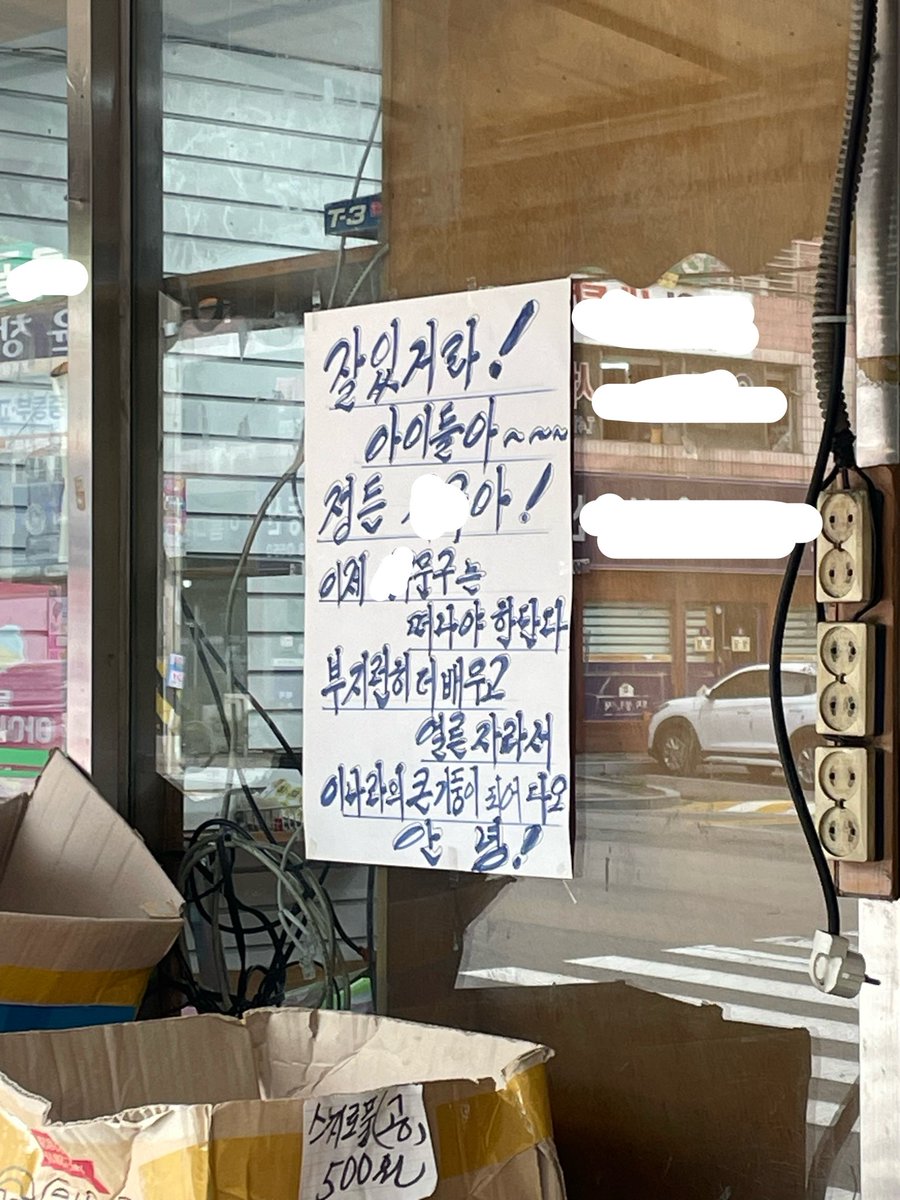 T-3
잘있거라!
아이들아~~~
정든 아!
이제 문구는
떠나야 한단다
부지런히 더 배우고
얼른 자라서
이나라의 큰 기둥이 되어 다오
안 녕!
스치로폴(공)
500원